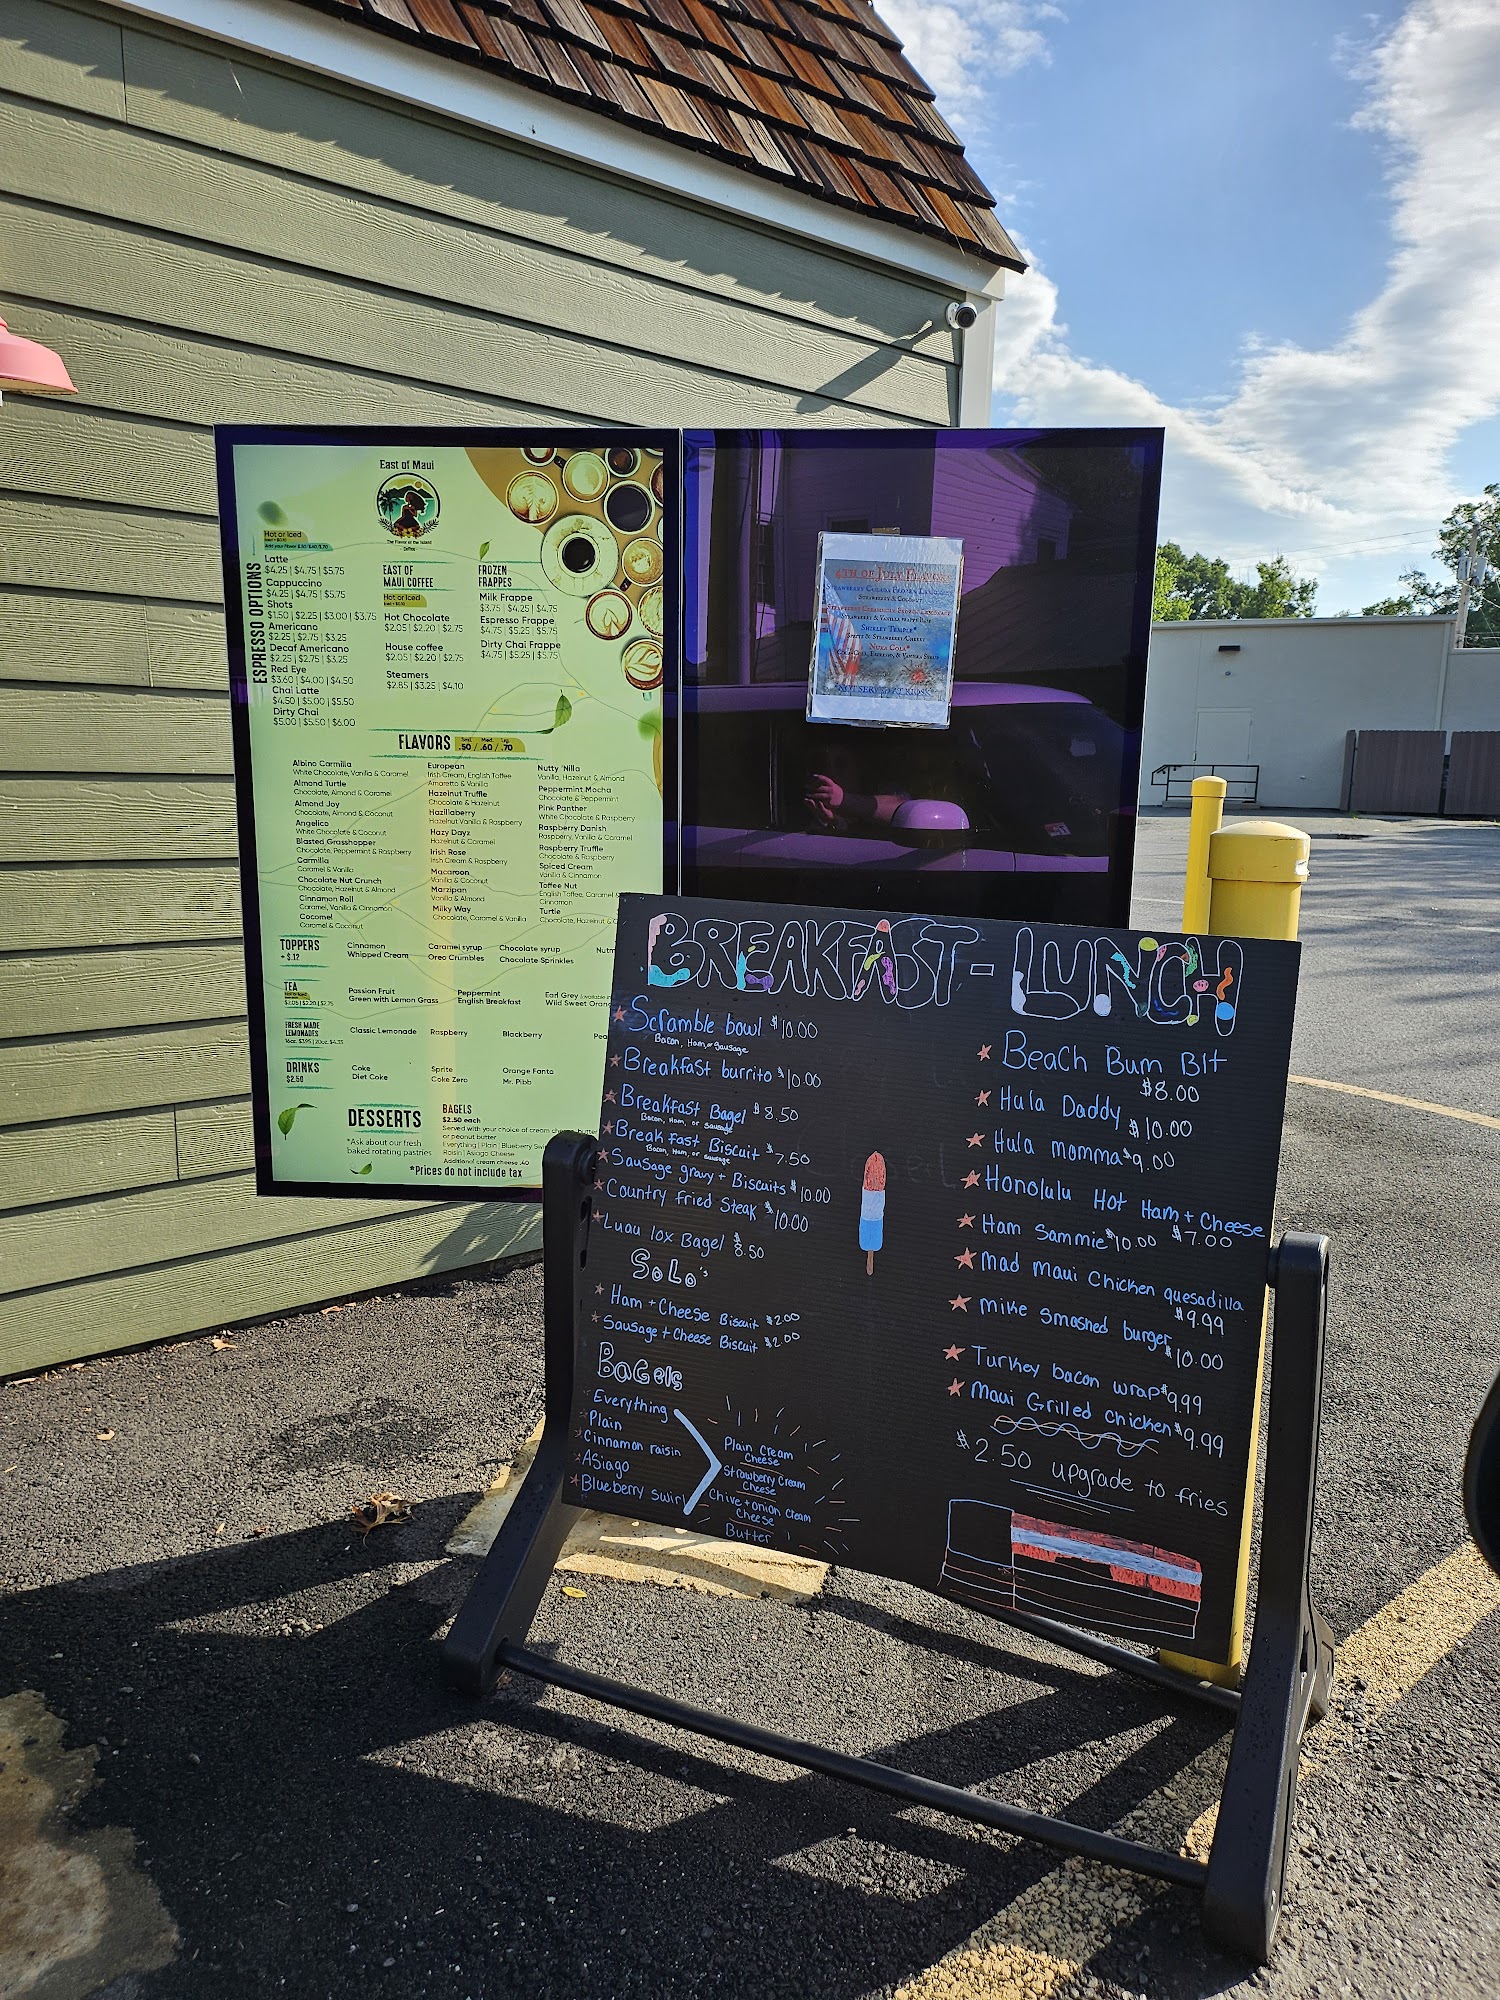 East of Maui
The Flavor of the Island
- Coffee -
ESPRESSO OPTIONS
Hot or Iced
Latte
$4.25 | $4.75 | $5.75
Cappuccino
$4.25 | $4.75 | $5.75
Shots
$1.50 | $2.25 | $3.00 | $3.75
Americano
$2.25 | $2.75 | $3.25
Decaf Americano
$2.25 | $2.75 | $3.25
Red Eye
$3.60 | $4.00 | $4.50
Chai Latte
$4.50 | $5.00 | $5.50
Dirty Chai
$5.00 | $5.50 | $6.00
EAST OF
MAUI COFFEE
Hot or Iced
Hot Chocolate
$2.05 | $2.20 | $2.75
House coffee
$2.05 | $2.20 | $2.75
Steamers
$2.85 | $3.25 | $4.10
FROZEN
FRAPPES
Milk Frappe
$3.75 | $4.25 | $4.75
Espresso Frappe
$4.75 | $5.25 | $5.75
Dirty Chai Frappe
$4.75 | $5.25 | $5.75
FLAVORS
.50 / .60 / .70
Albino Carmilla
White Chocolate, Vanilla & Caramel
Almond Turtle
Chocolate, Almond & Caramel
Almond Joy
Chocolate, Almond & Coconut
Angelico
White Chocolate & Coconut
Blasted Grasshopper
Chocolate, Peppermint & Raspberry
Carmilla
Caramel & Vanilla
Chocolate Nut Crunch
Chocolate, Hazelnut & Almond
Cinnamon Roll
Caramel, Vanilla & Cinnamon
Cocomel
Caramel & Coconut
European
Irish Cream, English Toffee
Amaretto & Vanilla
Hazelnut Truffle
Chocolate & Hazelnut
Hazillaberry
Hazelnut Vanilla & Raspberry
Hazy Dayz
Hazelnut & Caramel
Irish Rose
Irish Cream & Raspberry
Macaroon
Vanilla & Coconut
Marzipan
Vanilla & Almond
Milky Way
Chocolate, Caramel & Vanilla
Nutty 'Nilla
Vanilla, Hazelnut & Almond
Peppermint Mocha
Chocolate & Peppermint
Pink Panther
White Chocolate & Raspberry
Raspberry Danish
Raspberry, Vanilla & Caramel
Raspberry Truffle
Chocolate & Raspberry
Spiced Cream
Vanilla & Cinnamon
Toffee Nut
English Toffee, Caramel &
Cinnamon
Turtle
Chocolate, Hazelnut &
TOPPERS
+ $.12
Cinnamon Caramel syrup Chocolate syrup
Whipped Cream Oreo Crumbles Chocolate Sprinkles
TEA
$2.05 | $2.20 | $2.75
Passion Fruit Peppermint Earl Grey
Green with Lemon Grass English Breakfast Wild Sweet
FRESH MADE
LEMONADES
16oz. $3.95 | 20oz. $4.35
Classic Lemonade Raspberry Blackberry
DRINKS
$2.50
Coke Sprite Orange Fanta
Diet Coke Coke Zero Mr. Pibb
DESSERTS
*Ask about our fresh
baked rotating pastries
BAGELS
$2.50 each
Served with your choice of cream cheese, butter
or peanut butter
Everything | Plain | Blueberry
Raisin | Asiago Cheese
Additional cream cheese .60
*Prices do not include tax
4TH OF JULY FLAVORS
STRAWBERRY COLADA FROZEN LEMONADE
STRAWBERRY & COCONUT
STRAWBERRY CREAMSICLE FROZEN LEMONADE
SHIRLEY TEMPLE*
SPRITE & STRAWBERRY/CHERRY
NUKA COLA*
*NOT SERVED AT KIOSK*
BREAKFAST - LUNCH
Scramble bowl $10.00
Bacon, Ham, or Sausage
Breakfast burrito $10.00
Breakfast Bagel $8.50
Bacon, Ham, or Sausage
Breakfast Biscuit $7.50
Bacon, Ham, or Sausage
Sausage gravy + Biscuits $10.00
Country fried Steak $10.00
Luau lox Bagel $8.50
SoLo's
Ham + Cheese Biscuit $2.00
Sausage + Cheese Biscuit $2.00
BaGels
Everything
Plain
Cinnamon raisin
ASiago
Blueberry swirl
Plain Cream
Cheese
Strawberry Cream
Cheese
Chive + onion cream
Cheese
Butter
Beach Bum Blt
$8.00
Hula Daddy
$10.00
Hula momma $9.00
Honolulu Hot Ham + Cheese
$7.00
Ham Sammie $10.00
Mad Maui Chicken quesadilla
$9.99
Mike Smashed burger
$10.00
Turkey bacon wrap $9.99
Maui Grilled Chicken $9.99
$2.50 upgrade to fries